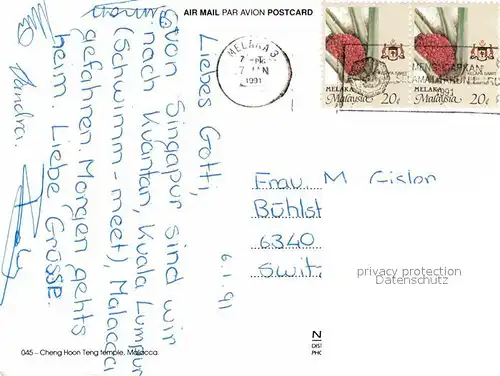 AIR MAIL PAR AVION POSTCARD
6.1.91
Liebes Gotti,
Von Singapur sind wir
nach Kuantan, Kuala Lumpur
(Schwimm-meet), Malacca
gefahren. Morgen gehts
heim. Liebe Grüsse
Sandra.
MELAKA 3
7 JAN
1991
MELAKA
Malaysia 20¢
MELAKA
Malaysia 20¢
SELAMAT TAHUN BARU
1991
Frau. M. Gisler
Bühlst
6340
Swit
privacy protection
Datenschutz
045 – Cheng Hoon Teng temple, Malacca.